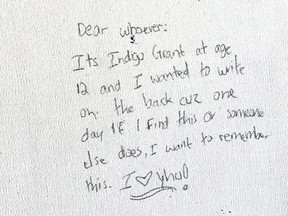 Dear whoever:
Its Indigo Grant at age
12 and I wanted to write
on the back cuz one
day if I find this or someone
else does, I want to remember
this. I ♡